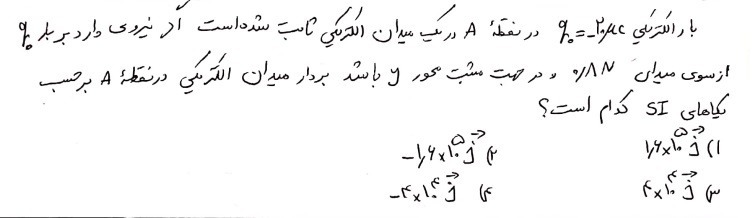 بار الکتریکی q₀ = -۲۰μC در نقطهٔ A در یک میدان الکتریکی ثابت شده است اگر نیروی وارد بر بار q₀
از سوی میدان ۰/۸ N و در جهت مثبت محور y باشد بردار میدان الکتریکی در نقطهٔ A برحسب
یکاهای SI کدام است؟
۱) ۱٫۶×۱۰^۵ j⃗ ۲) -۱٫۶×۱۰^۵ j⃗
۳) ۴×۱۰^۴ j⃗ ۴) -۴×۱۰^۴ j⃗